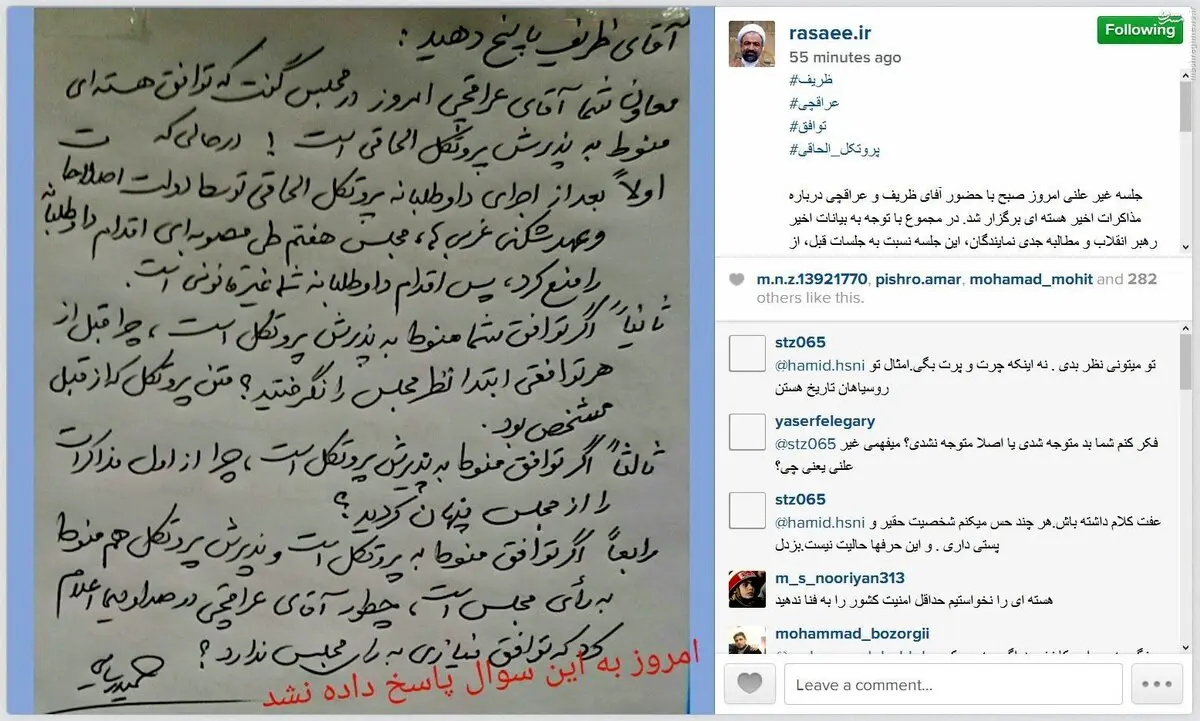 آقای ظریف پاسخ دهید :
معاون شما آقای عراقچی امروز در مجلس گفت که توافق هسته ای
منوط به پذیرش پروتکل الحاقی است ! درحالی که
اولاً بعد از اجرای داوطلبانه پروتکل الحاقی توسط دولت اصلاحات
و عهدشکنی غربی ها، مجلس هفتم طی مصوبه ای اقدام داوطلبانه
را منع کرد، پس اقدام داوطلبانه شما غیرقانونی است.
ثانیاً اگر توافق شما منوط به پذیرش پروتکل است ، چرا قبل از
هر توافقی ابتدا نظر مجلس را نگرفتید؟ متن پروتکل که از قبل
مشخص بود.
ثالثاً اگر توافق منوط به پذیرش پروتکل است ، چرا از اول مذاکرات
را از مجلس پنهان کردید؟
رابعاً اگر توافق منوط به پروتکل است و پذیرش پروتکل هم منوط
به رأی مجلس است، چطور آقای عراقچی در صدا و سیما اعلام
کرد که توافق نیازی به رای مجلس ندارد؟
حمید رسایی
امروز به این سوال پاسخ داده نشد
rasaee.ir
Following
55 minutes ago
#ظریف
#عراقچی
#توافق
#پروتکل_الحاقی
جلسه غیر علنی امروز صبح با حضور آقای ظریف و عراقچی درباره
مذاکرات اخیر هسته ای برگزار شد. در مجموع با توجه به بیانات اخیر
رهبر انقلاب و مطالبه جدی نمایندگان، این جلسه نسبت به جلسات قبل، از
m.n.z.13921770, pishro.amar, mohamad_mohit and 282
others like this.
stz065
@hamid.hsni تو میتونی نظر بدی . نه اینکه چرت و پرت بگی.امثال تو
روسیاهان تاریخ هستن
yaserfelegary
@stz065 فکر کنم شما بد متوجه شدی یا اصلا متوجه نشدی؟ میفهمی غیر
علنی یعنی چی؟
stz065
@hamid.hsni عفت کلام داشته باش.هر چند حس میکنم شخصیت حقیر و
پستی داری . و این حرفها حالیت نیست.بزدل
m_s_nooriyan313
هسته ای را نخواستیم حداقل امنیت کشور را به فنا ندهید
mohammad_bozorgii
Leave a comment...